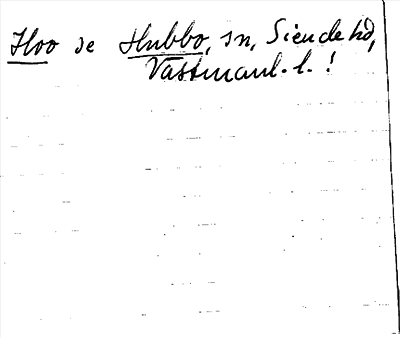 Hoo se Hubbo, sn, Siende hd,
Västmanl. l. !